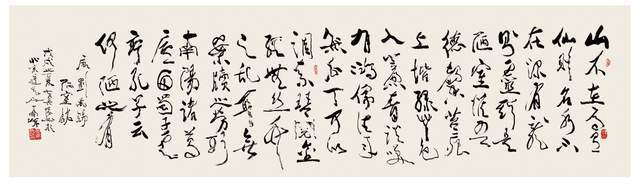 山不在高有
仙則名水不
在深有龍
則靈斯是
陋室惟吾
德馨苔痕
上階綠草色
入簾青談笑
有鴻儒往來
無白丁可以
調素琴閱金
經無絲竹
之亂耳無
案牘之勞形
南陽諸葛
廬西蜀子雲
亭孔子云
何陋之有
唐劉禹錫
陋室銘